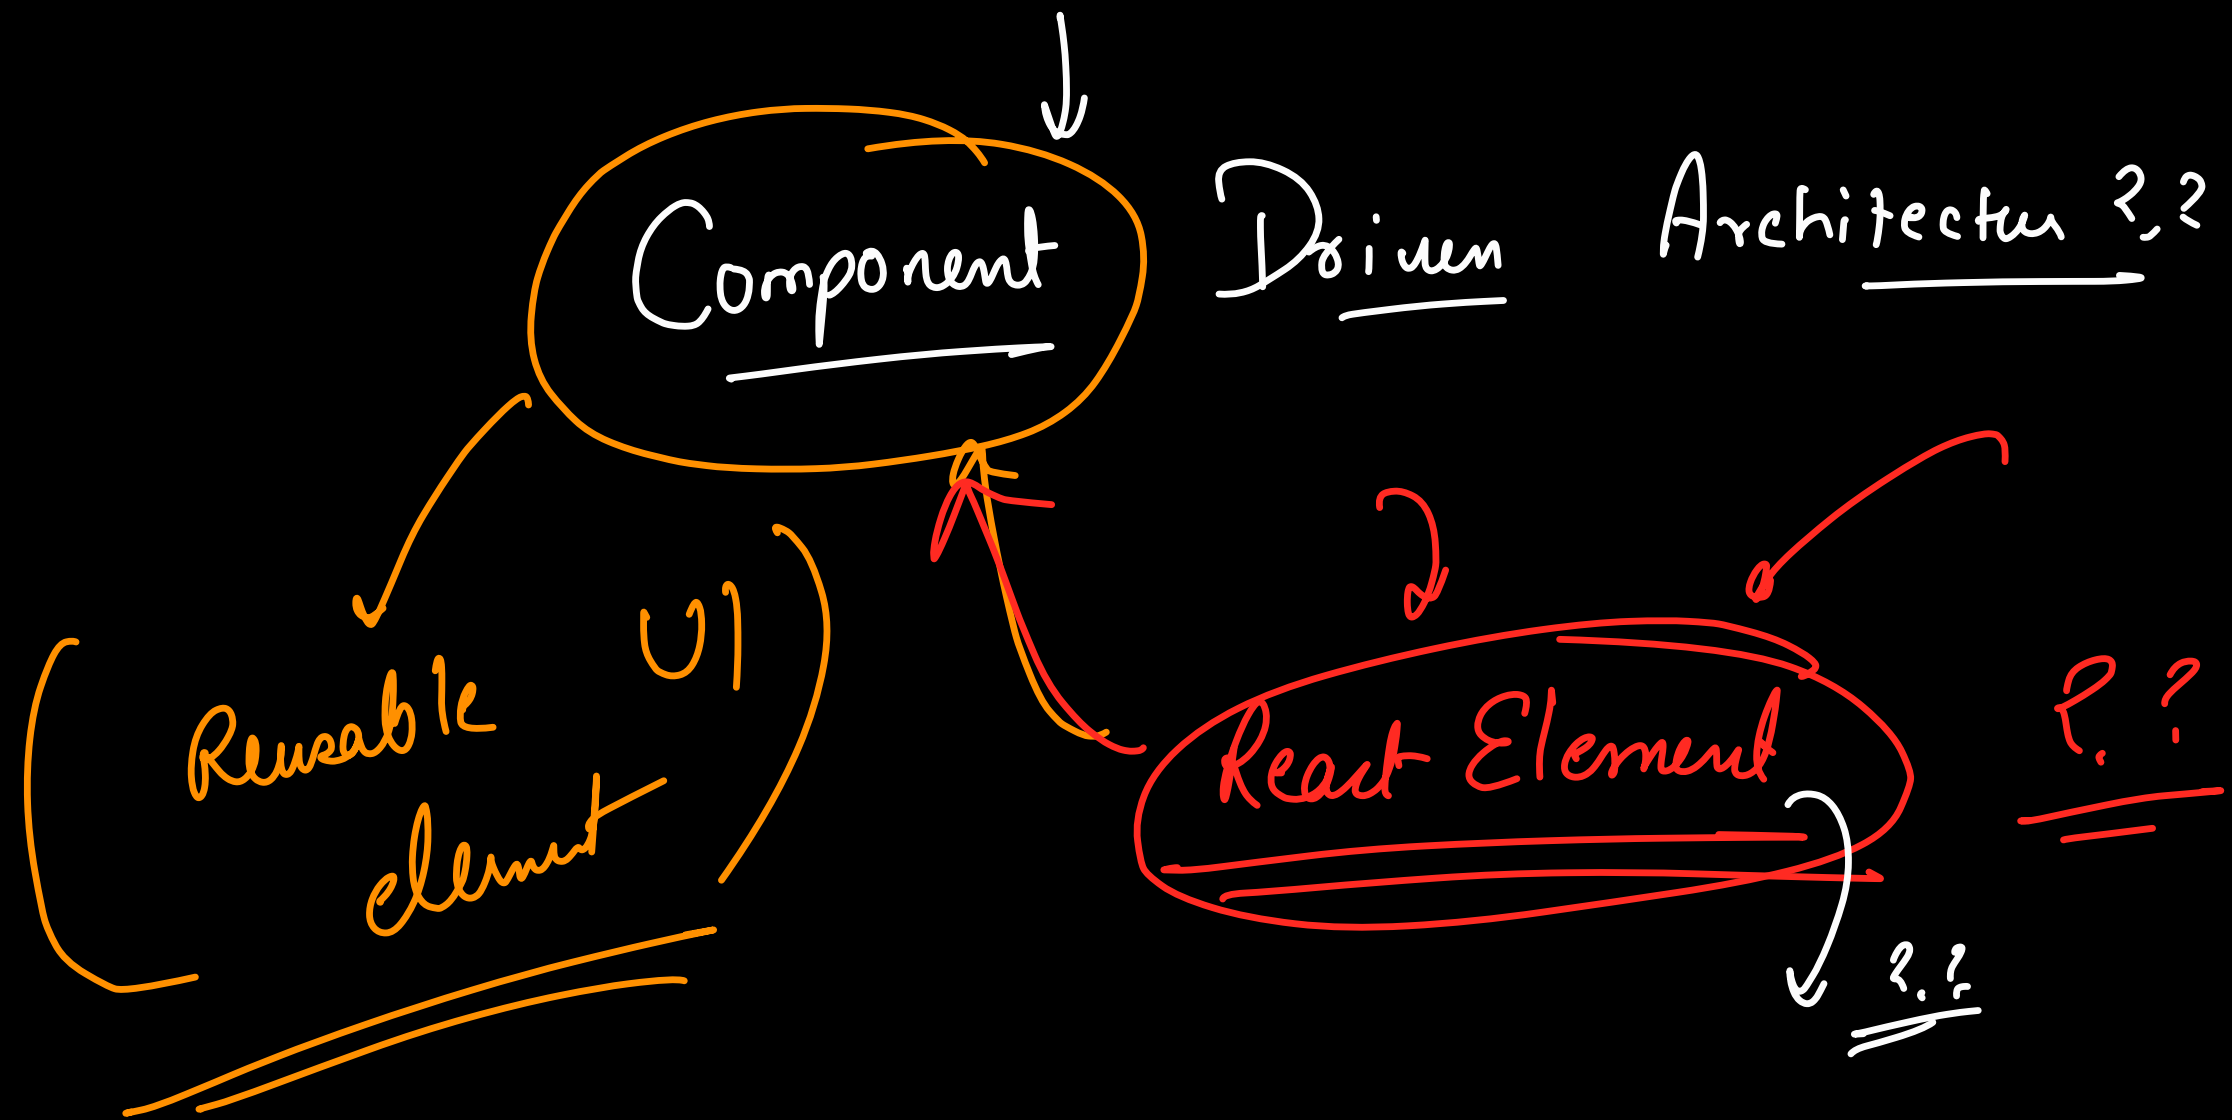 Component Driven Architectur ?.?
Reusable UI
element
React Element ?.?
?.?